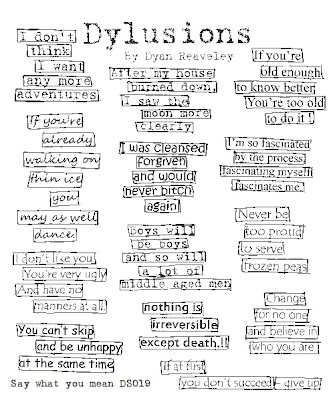 Dylusions
by Dyan Reaveley
I don't
think
I want
any more
adventures
If you're
already
walking on
thin ice
you
may as well
dance.
I don't like you
You're very ugly
And have no
manners at all.
You can't skip
and be unhappy
at the same time
After my house
burned down,
I saw the
moon more
clearly
I was cleansed
forgiven
and would
never bitch
again
boys will
be boys
and so will
a lot of
middle aged men
nothing is
irreversible
except death.!!
If at first
you don't succeed - give up
If you're
old enough
to know better
You're too old
to do it !
I'm so fascinated
by the process
fascinating myself
fascinates me.
Never be
too proud
to serve
frozen peas
Change
for no one
and believe in
who you are.
Say what you mean DS019